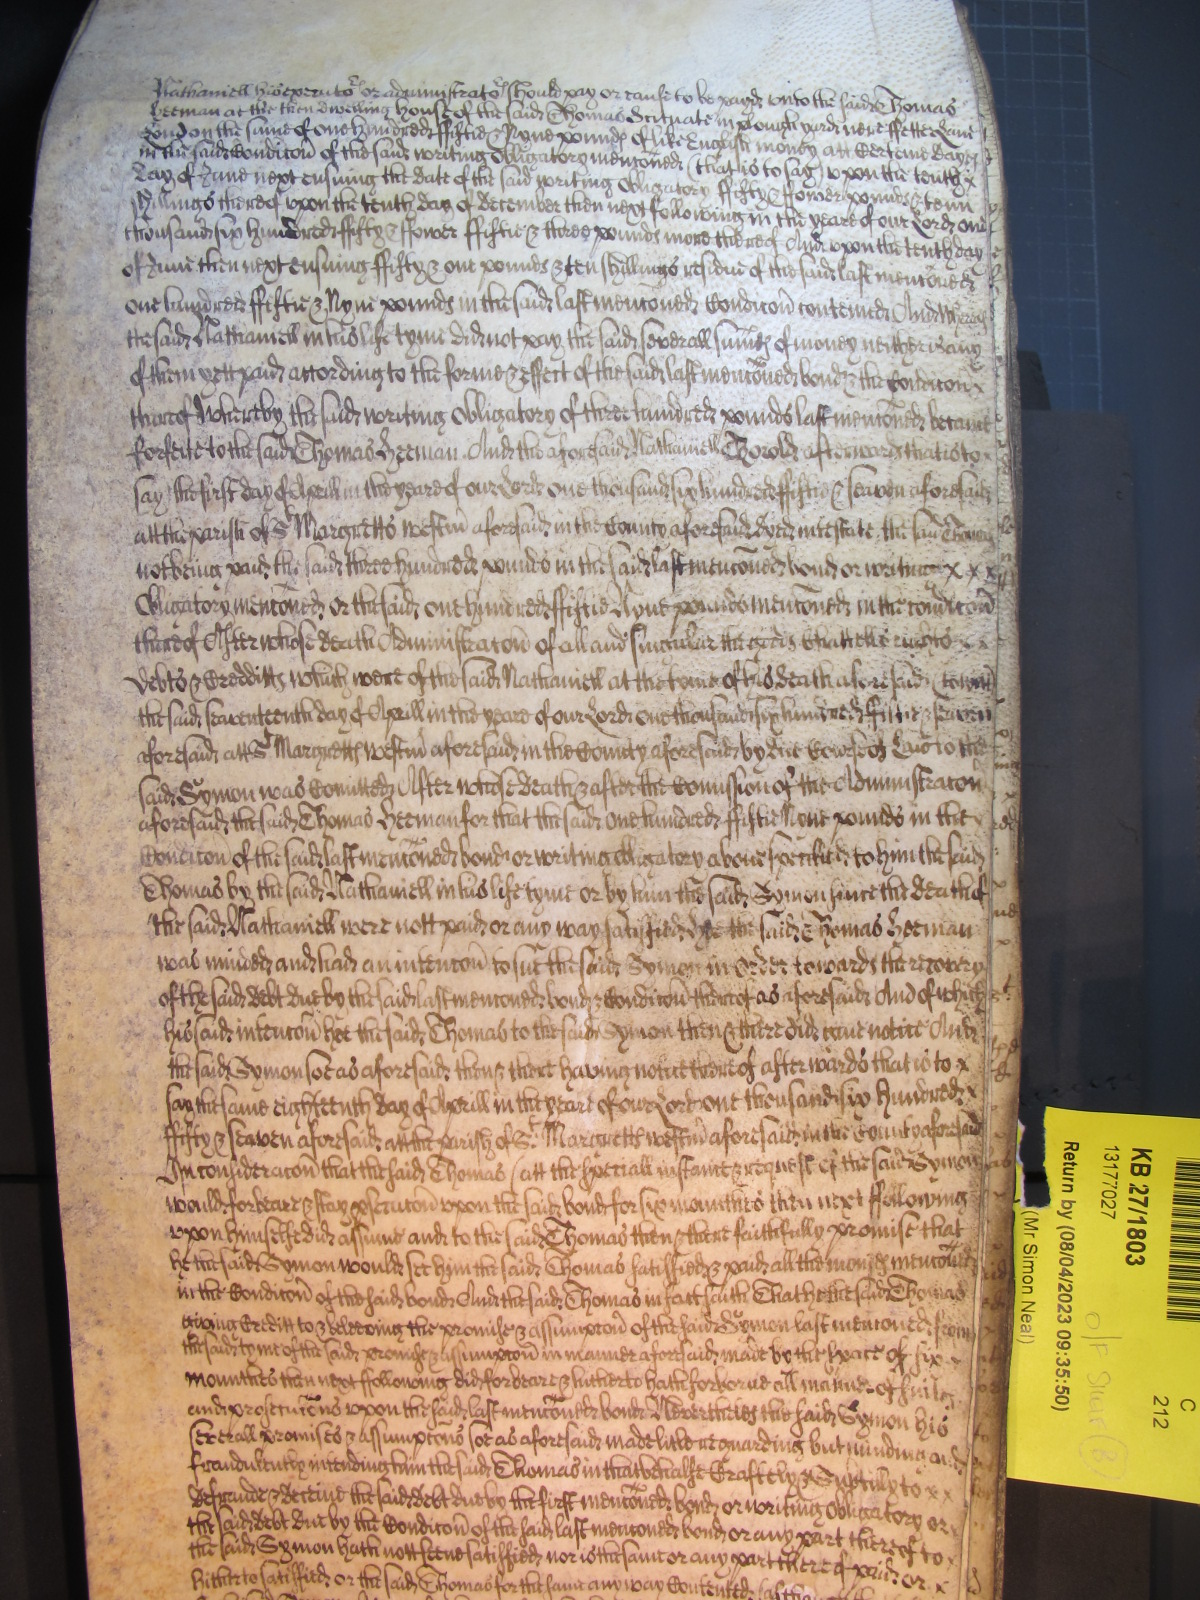 Nathaniell his executors or administrators should pay or cause to be payd unto the said Thomas
Heeman at the then dwelling house of the said Thomas Scituate in plough yard neere ffetter Lane
London the summe of one hundred ffiftie & Nyne pounds of like English money att Certeine dayes
in the said Condicon of the said writing obligatory menconed (that is to say) upon the tenth x
day of June next ensuing the date of the said writing obligatory ffifty & ffower pounds & tenn
shillings thereof upon the tenth day of December then next following in the yeare of our Lord one
thousand six hundred ffifty & ffower ffiftie & three pounds more thereof And upon the tenth day
of June then next ensuing ffifty & one pounds & ten shillings residue of the said last menconed
one hundred ffiftie & Nyne pounds in the said last menconed Condicon conteined And whereas
the said Nathaniell in his life tyme did not pay the said severall summes of money neither is any
of them yett paid according to the forme & effect of the said last menconed bond & the Condicon x
thereof Whereby the said writing Obligatory of three hundred pounds last menconed became
forfeite to the said Thomas Heeman And the aforesaid Nathaniell afterwards that is to x
say the first day of Aprill in the yeare of our Lord one thousand six hundred ffiftie & seaven aforesaid
att the parish of St Margretts Westm aforesaid in the County aforesaid dyed intestate the said Thomas
not being paid the said three hundred pounds in the said last menconed bond or writing x x x
Obligatory menconed or the said one hundred ffiftie Nyne pounds menconed in the condicon
thereof After whose death Administracon of all and singular the goods Chattells rights x x
debts & Creditts which were of the said Nathaniell at the tyme of his death aforesaid
the said seaventeenth day of Aprill in the yeare of our Lord one thousand six hundred fiftie & seaven
aforesaid att St Margretts Westm aforesaid in the County aforesaid by due Course of Law to the
said Symon was Comitted After whose death & after the Comission of the Administracon
aforesaid the said Thomas Heeman for that the said one hundred ffiftie Nyne pounds in the x
Condicon of the said last menconed bond or writing obligatory above specified to him the said
Thomas by the said Nathaniell in his life tyme or by him the said Symon since the death of
the said Nathaniell were nott paid or any way satisfied hee the said Thomas Heeman
was minded and had an intencon to sue the said Symon in Order towards the recovery
of the said debt due by the said last menconed bond & Condicon thereof as aforesaid And of which
his said intencon hee the said Thomas to the said Symon then & there did give notice And
the said Symon soe as aforesaid then & there having notice thereof afterwards that is to x
say the same eighteenth day of Aprill in the yeare of our Lord one thousand six hundred x
ffifty & seaven aforesaid att the parish of St Margretts Westm aforesaid in the County aforesaid
In consideracon that the said Thomas (att the speciall instance & request of the said Symon
would forbeare & stay prosecucon upon the said bond for six moneths then next ffollowing
upon himselfe did assume and to the said Thomas then & there faithfully promise that
he the said Symon would see him the said Thomas satisfied & paid all the moneys menconed
in the Condicon of the said bond And the said Thomas in fact saith That he the said Thomas
giving Creditt to & beleeving the promise & assumpcon of the said Symon last menconed from
the said tyme of the said promise & assumpcon in manner aforesaid made by the space of six x
moneths then next ffollowing did forbeare & hitherto hath forborne all manner of suites
and prosecucons upon the said last menconed bond Neverthelesse the said Symon his
severall promises & assumpcons soe as aforesaid made little regarding but minding and
fraudulently intending him the said Thomas in that behalfe Craftely & Subtilly to x x
defraude & deceive the said debt due by the first menconed bond or writing Obligatory or
the said debt due by the Condicon of the said last menconed bond or any part thereof to x
the said Symon hath nott seene satisfied nor is the same or any part thereof paid or x
hitherto satisfied or the said Thomas for the same any way Contented
KB 27/1803
13177027
Return by (08/04/2023 09:35:50)
(Mr Simon Neal)
C
212